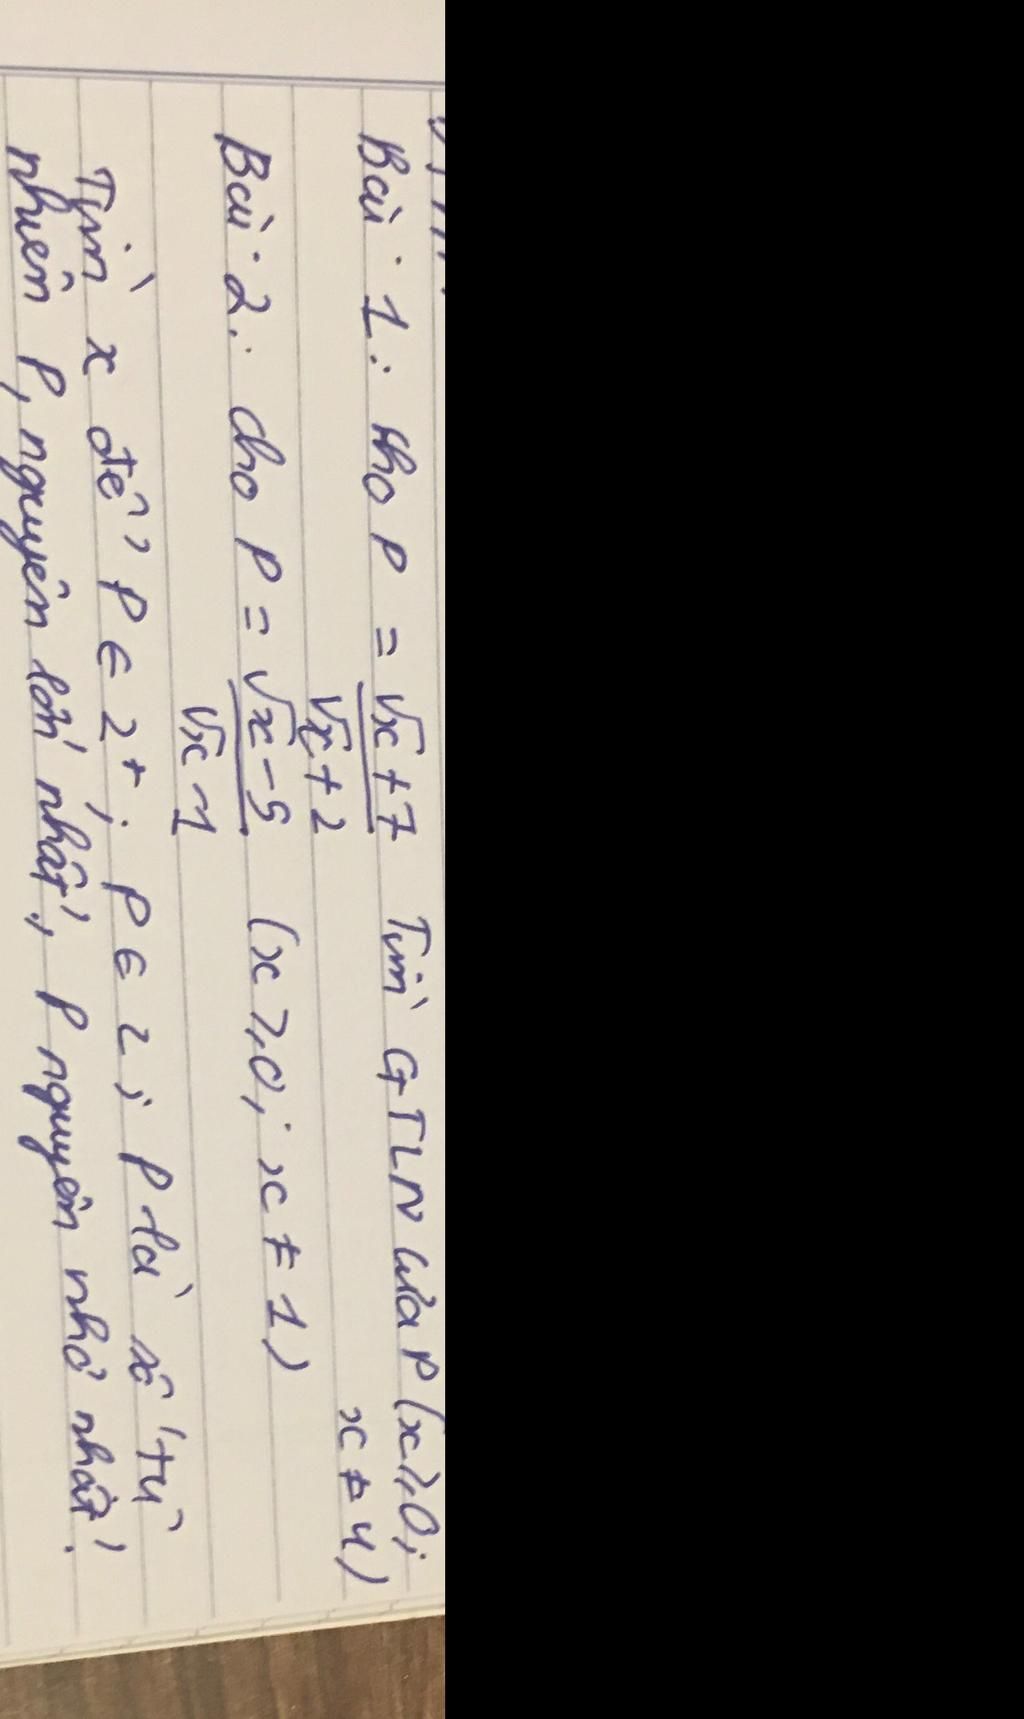 Bài 1: Cho P = √x + 7 / √x + 2 Tìm GTLN của P (x ≥ 0; x ≠ 4)
Bài 2: Cho P = √x - 5 / √x - 1 (x ≥ 0; x ≠ 1)
Tìm x để P ∈ Z⁺; P ∈ Z; P là số tự
nhiên P, nguyên lớn nhất, P nguyên nhỏ nhất.